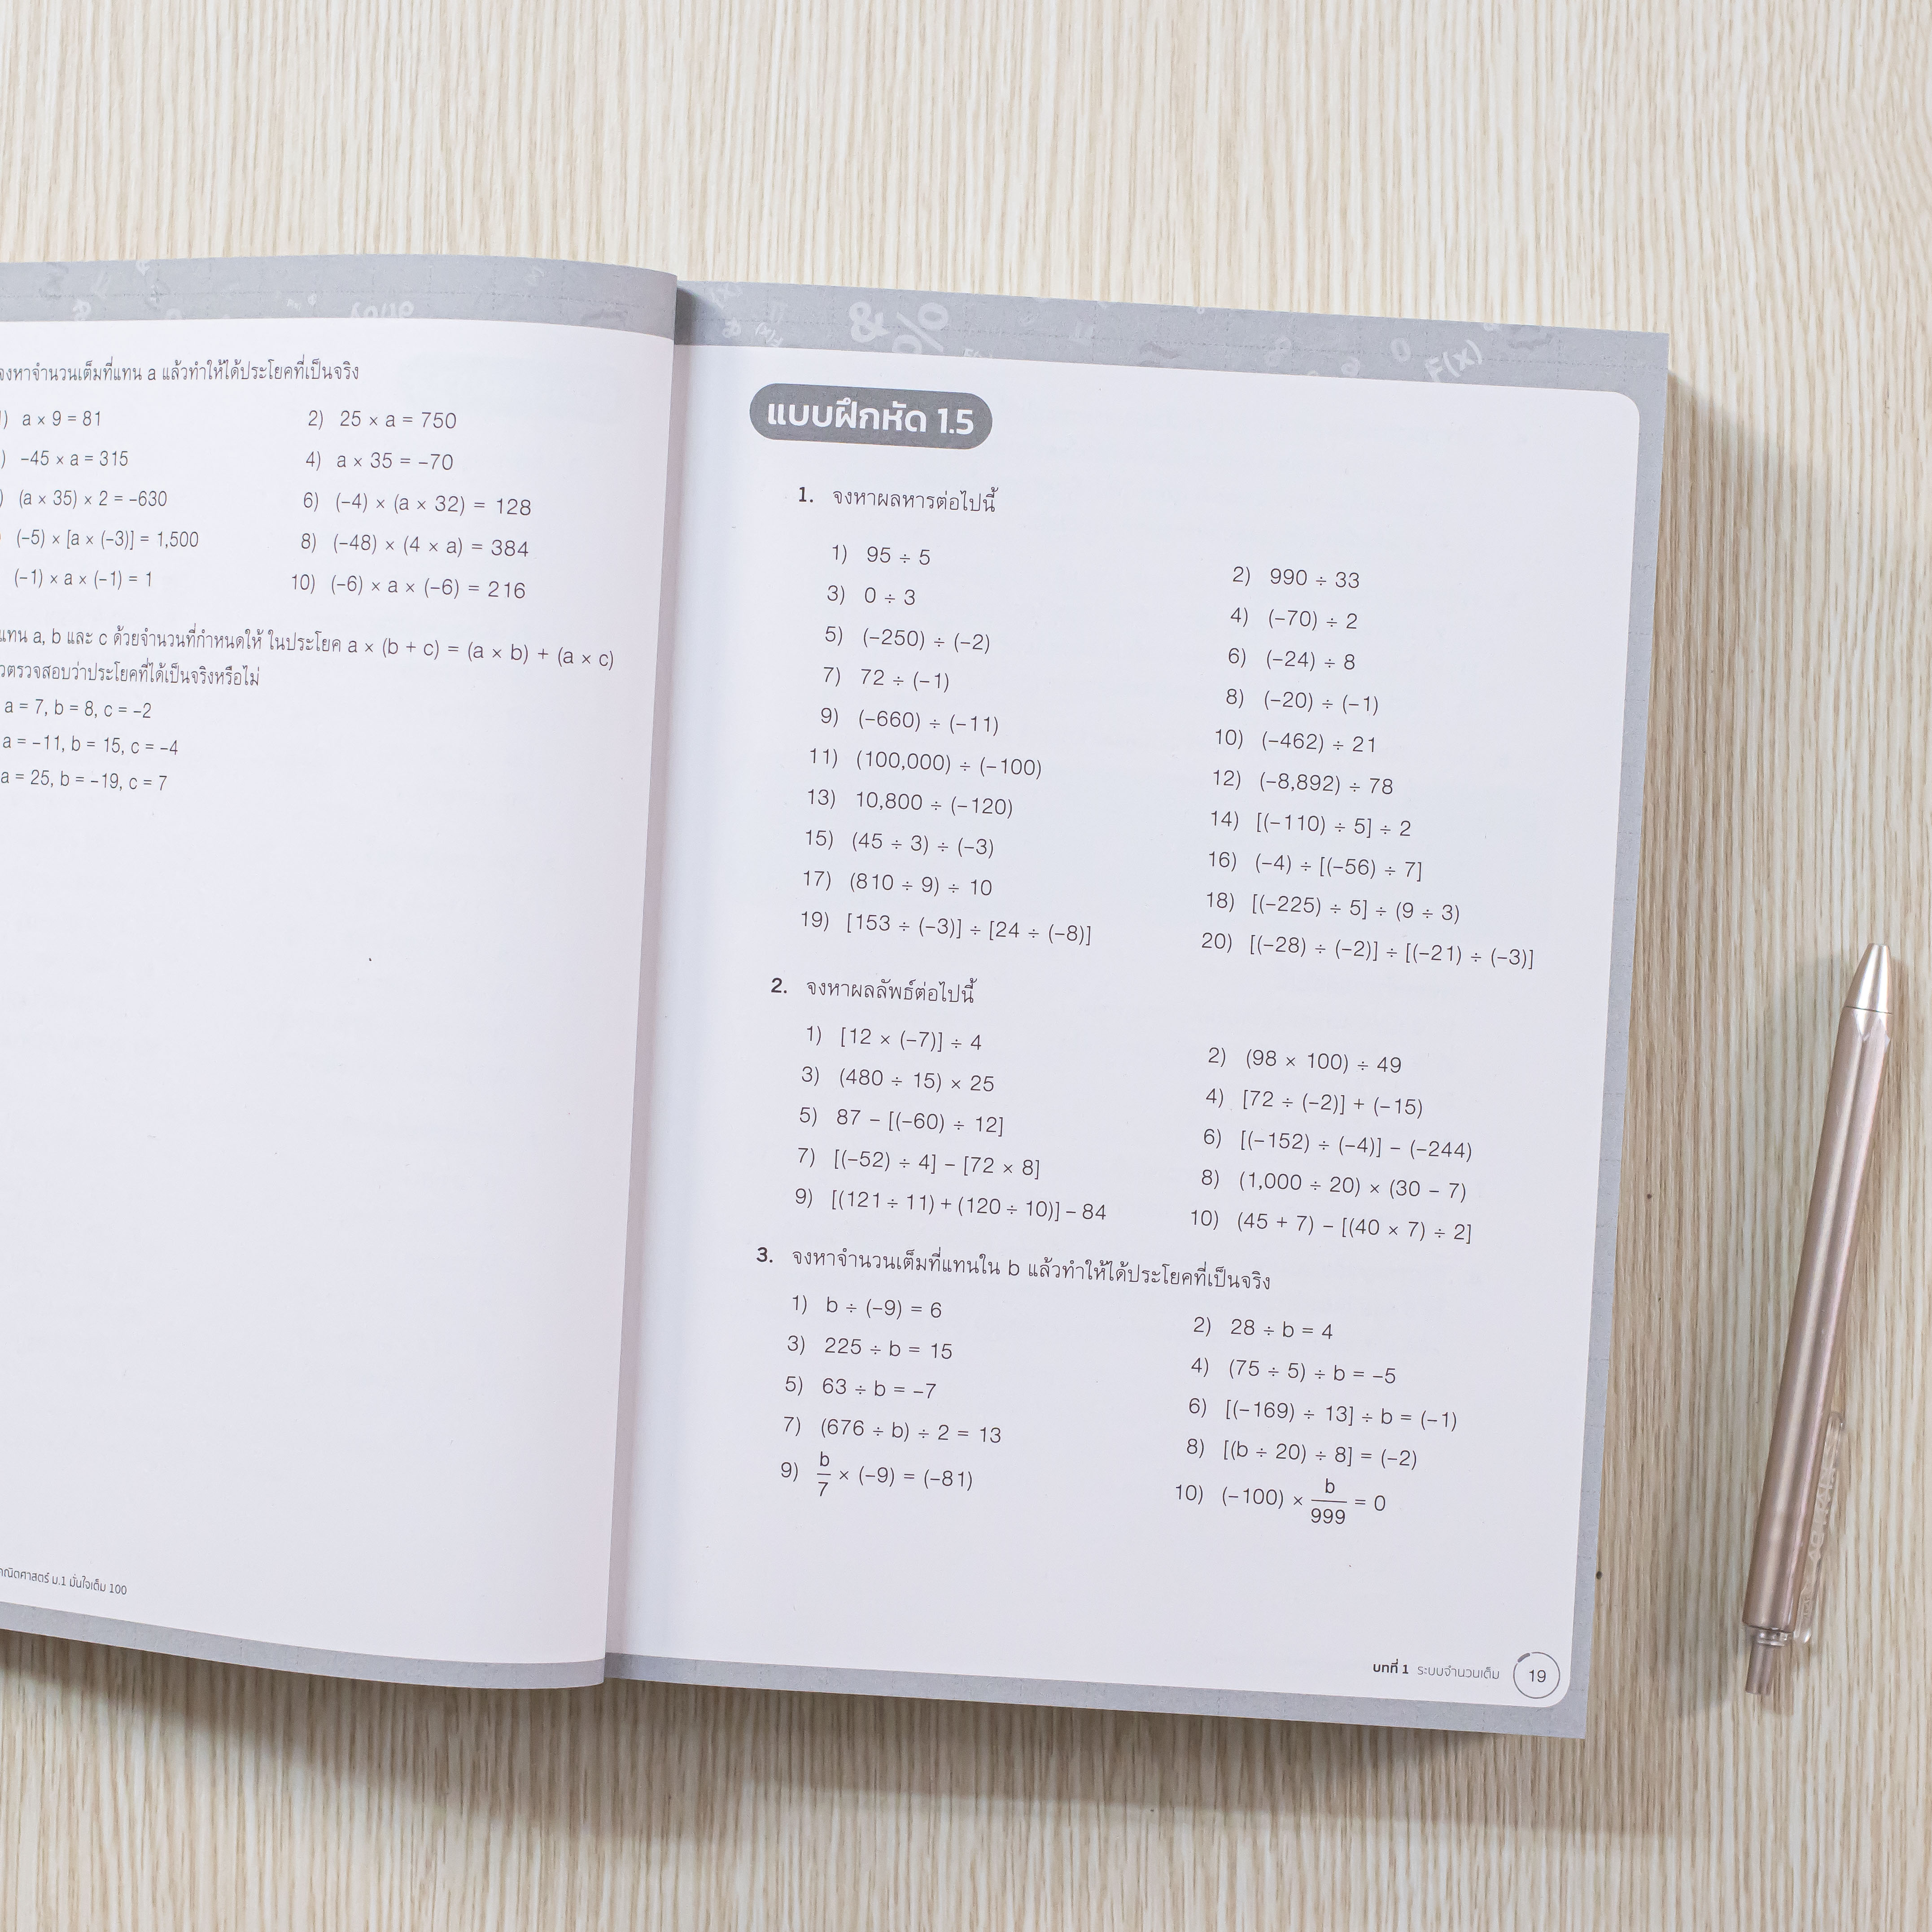 จงหาจำนวนเต็มที่แทน a แล้วทำให้ได้ประโยคที่เป็นจริง
) a × 9 = 81 2) 25 × a = 750
) −45 × a = 315 4) a × 35 = −70
) (a × 35) × 2 = −630 6) (−4) × (a × 32) = 128
(−5) × [a × (−3)] = 1,500 8) (−48) × (4 × a) = 384
(−1) × a × (−1) = 1 10) (−6) × a × (−6) = 216
แทน a, b และ c ด้วยจำนวนที่กำหนดให้ ในประโยค a × (b + c) = (a × b) + (a × c)
วตรวจสอบว่าประโยคที่ได้เป็นจริงหรือไม่
a = 7, b = 8, c = −2
a = −11, b = 15, c = −4
a = 25, b = −19, c = 7
ณิตศาสตร์ ม.1 มั่นใจเต็ม 100
& % F(x)
แบบฝึกหัด 1.5
1. จงหาผลหารต่อไปนี้
1) 95 ÷ 5 2) 990 ÷ 33
3) 0 ÷ 3 4) (−70) ÷ 2
5) (−250) ÷ (−2) 6) (−24) ÷ 8
7) 72 ÷ (−1) 8) (−20) ÷ (−1)
9) (−660) ÷ (−11) 10) (−462) ÷ 21
11) (100,000) ÷ (−100) 12) (−8,892) ÷ 78
13) 10,800 ÷ (−120) 14) [(−110) ÷ 5] ÷ 2
15) (45 ÷ 3) ÷ (−3) 16) (−4) ÷ [(−56) ÷ 7]
17) (810 ÷ 9) ÷ 10 18) [(−225) ÷ 5] ÷ (9 ÷ 3)
19) [153 ÷ (−3)] ÷ [24 ÷ (−8)] 20) [(−28) ÷ (−2)] ÷ [(−21) ÷ (−3)]
2. จงหาผลลัพธ์ต่อไปนี้
1) [12 × (−7)] ÷ 4 2) (98 × 100) ÷ 49
3) (480 ÷ 15) × 25 4) [72 ÷ (−2)] + (−15)
5) 87 − [(−60) ÷ 12] 6) [(−152) ÷ (−4)] − (−244)
7) [(−52) ÷ 4] − [72 × 8] 8) (1,000 ÷ 20) × (30 − 7)
9) [(121 ÷ 11) + (120 ÷ 10)] − 84 10) (45 + 7) − [(40 × 7) ÷ 2]
3. จงหาจำนวนเต็มที่แทนใน b แล้วทำให้ได้ประโยคที่เป็นจริง
1) b ÷ (−9) = 6 2) 28 ÷ b = 4
3) 225 ÷ b = 15 4) (75 ÷ 5) ÷ b = −5
5) 63 ÷ b = −7 6) [(−169) ÷ 13] ÷ b = (−1)
7) (676 ÷ b) ÷ 2 = 13 8) [(b ÷ 20) ÷ 8] = (−2)
9) b/7 × (−9) = (−81) 10) (−100) × b/999 = 0
บทที่ 1 ระบบจำนวนเต็ม 19